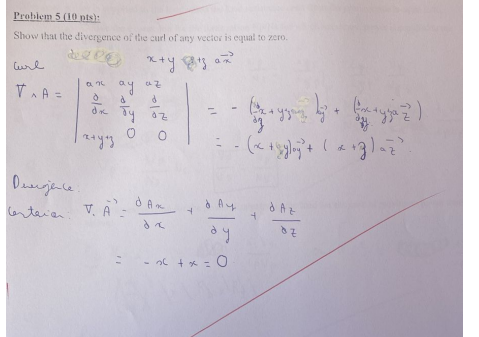 Problem 5 (10 pts):
Show that the divergence of the curl of any vector is equal to zero.
x+y+z ax→
curl
∇ ∧ A = | ax ay az |
| ∂/∂x ∂/∂y ∂/∂z |
| x+y+z 0 0 |
= - ( ∂/∂z x+y+z ) ay→ + ( ∂/∂y x+y+z az→ )
= - (x + y) ay→ + ( x + z ) az→ .
Divergence:
Cartesian: ∇. A→ = ∂Ax/∂x + ∂Ay/∂y + ∂Az/∂z
= - x + x = 0